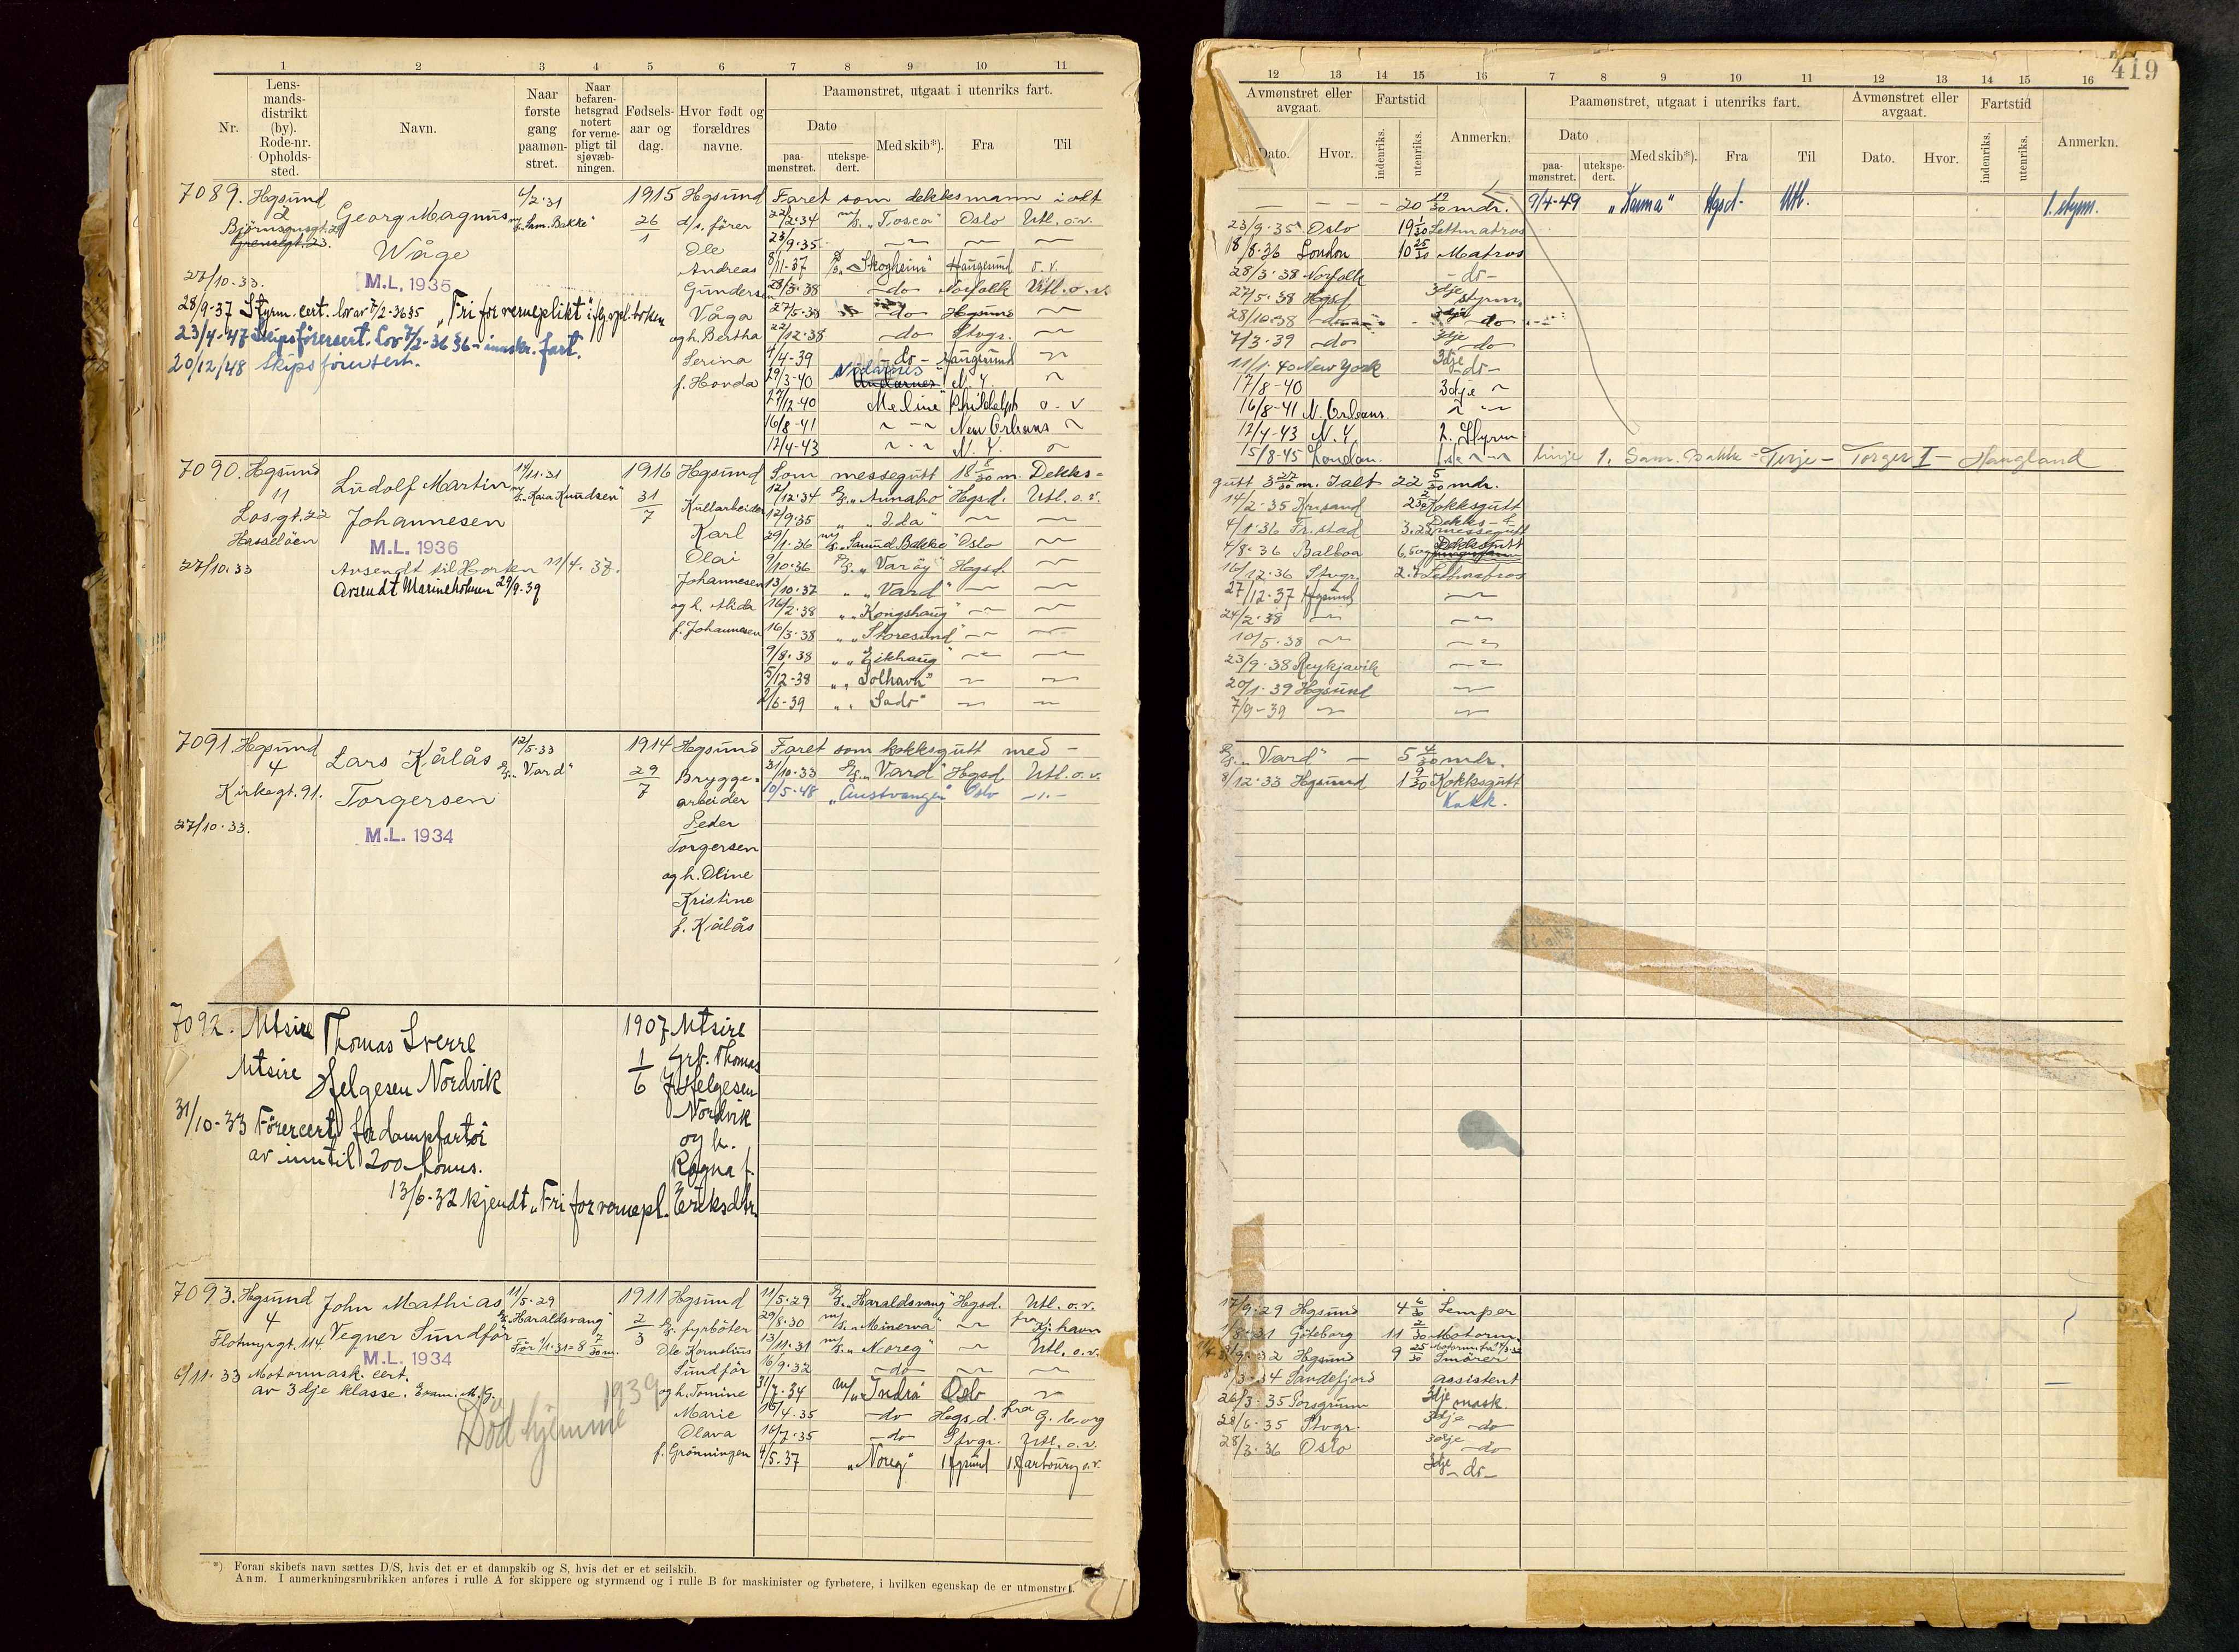 1 2 3 4 5 6 7 8 9 10 11
Nr.
Lens-
mands-
distrikt
(by).
Rode-nr.
Opholds-
sted.
Navn.
Naar
første
gang
paamøn-
stret.
Naar
befaren-
hetsgrad
notert
for verne-
pligt til
sjøvæb-
ningen.
Fødsels-
aar og
dag.
Hvor født og
forældres
navne.
Paamønstret, utgaat i utenriks fart.
Dato
paa-
mønstret.
utekspe-
dert.
Med skib*).
Fra
Til
7089. Hgsund
2
Georg Magnus
Wåge
M.L. 1935
27/10-33.
6/2-31
"Sam. Bakke"
1915
26/1
Hgsund
d/s. fører
Ole
Andreas
Gundersen
Våga
og h. Bertha
Serina
f. Hovda
28/9-37 Styrm. cert. lov av 7/2-36 §5 "Fri for verneplikt" iflg. vpl. boken
23/4-47 Skipsførercert. Lov 7/2-36 §6 - innskr. fart.
20/12/48 Skipsførercert.
Faret som dekksmann i alt
22/2-34 m/s. "Tosca" Oslo Utl. o.v.
23/9-35
8/11-37 "Skogheim" Haugesund o.v.
28/3-38 do Norfolk Utl. o.v.
27/5-38 do Hgsund
22/12-38 do Stvgr.
4/4-39 do Haugesund
29/3-40 Nidarnes N.Y.
27/12-40 Meline" Philadelph o.v
16/8-41 New Orleans
12/4-43 N.Y.
7090. Hgsund
11
Losgt. 22
Hasseløen
27/10-33
Ludolf Martin
Johannesen
M.L. 1936
Avsendt til Horten 11/4-37.
Avsendt Marineholmen 29/9-39
14/11-31
"Kaia Knudsen"
1916
31/7
Hgsund
Kullarbeider
Karl
Olai
Johannesen
og h. Alida
f. Johannesen
Som messegutt 18 8/30 m. Dekks-
12/12-34 D/S. "Annaho" Hgsd. Utl. o.v.
12/9-35 " "Ida"
29/1-36 m/s. "Samund Bakke" Oslo
9/10-36 D/S. "Varøy" Hgsd.
13/10-37 " "Vard"
16/2-38 " "Kongshaug"
16/3-38 " "Storesund"
9/8-38 " "Eikhaug"
5/12-38 " "Solhavn"
2/6-39 " "Sado"
7091. Hgsund
4
Kirkegt. 91.
27/10-33.
Lars Kålås
Torgersen
M.L. 1934
12/5-33
D/S. "Vard"
1914
29/7
Hgsund
Brygge-
arbeider
Peder
Torgersen
og h. Oline
Kristine
f. Kålås
Faret som kokksgutt med -
31/10-33 D/S. "Vard" Hgsd Utl. o.v.
10/5-48 "Austvangen" Oslo -"-
7092. Utsire
Utsire
Thomas Sverre
Helgesen Nordvik
1907
1/6
Utsire
Grb. Thomas
Helgesen
Nordvik
og h.
Ragna f.
Eriksdtr.
31/10-33 Førercert. for dampfartøi
av inntil 200 tonns.
13/6-32 kjendt "Fri for vernepl.
7093. Hgsund
4
Flotmyrgt. 114.
John Mathias
Vegner Sundfør
M.L. 1934
11/5-29
"Haraldsvang"
Før 1/1-31 = 8 7/30 m.
1911
2/3
Hgsund
D/S. fyrbøter
Ole Kornelius
Sundfør
og h. Tomine
Marie
Olava
f. Grønningen
6/11-33 Motormask. cert.
av 3dje klasse.
Død hjemme 1939
11/5-29 D/S. "Haraldsvang" Hgsd. Utl. o.v.
29/8-30 m/s. "Minerva" fra Kj.havn
13/11-31 m/s. "Noreg" Utl. o.v.
16/9-32 do
31/7-34 m/s "Indra" Oslo
16/4-35 do Hgsd. fra G.borg
16/7-35 do Stvgr. Utl. o.v.
4/5-37 "Noreg" Hgsund Harbourg o.v.
*) Foran skibets navn sættes D/S, hvis det er et dampskib og S, hvis det er et seilskib.
Anm. I anmerkningsrubrikken anføres i rulle A for skippere og styrmænd og i rulle B for maskinister og fyrbøtere, i hvilken egenskap de er utmønstret.
419
12 13 14 15 16 7 8 9 10 11 12 13 14 15 16
Avmønstret eller
avgaat.
Dato.
Hvor.
Fartstid
indenriks.
utenriks.
Anmerkn.
Paamønstret, utgaat i utenriks fart.
Dato
paa-
mønstret.
utekspe-
dert.
Med skib*).
Fra
Til
Avmønstret eller
avgaat.
Dato.
Hvor.
Fartstid
indenriks.
utenriks.
Anmerkn.
20 19/30 mdr. 9/4-49 "Karma" Hgsd. Utl. 1. styrm.
23/9-35 Oslo 19 1/30 Lettmatros
18/8-36 London 10 25/30 Matros
28/3-38 Norfolk - do -
27/5-38 Hgsd 3dje styrm.
28/10-38 3dje do
7/3-39 do 3dje do
11/1-40 New York 3dje do -
17/8-40 3dje
16/8-41 N. Orleans
12/4-43 N.Y. 2. Styrm
15/8-45 London 1ste
linje 1. Sam. Bakke - Terje - Torger I - Haugland
gutt 3 27/30 m. Ialt 22 5/30 mdr.
14/2-35 Krisand Kokksgutt
4/1-36 Fr.stad Dekks- & messegutt
4/8-36 Balboa Dekksgutt
16/12-36 Stvgr. Lettmatros
27/12-37 Hgsund
24/2-38
10/5-38
23/9-38 Reykjavik
20/1-39 Hgsund
7/9-39
D/S. "Vard" - 5 4/30 mdr.
8/12-33 Hgsund 1 9/30 Kokksgutt
Kokk.
17/9-29 Hgsund 4 6/30 Lemper
1/8-31 Göteborg 11 2/30 Motorm.
9-32 Hgsund 9 25/30 Smører
8/3-34 Sandefjord assistent
26/3-35 Porsgrunn 3dje mask.
28/6-35 Stvgr. 3dje do
28/3-36 Oslo 3dje do
3dje - do -